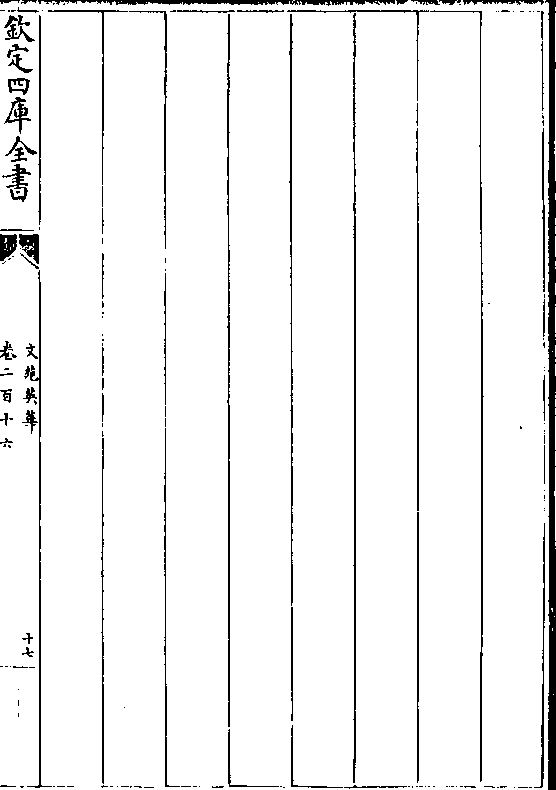 欽定四庫全書
文苑英華
卷二百十六
十七